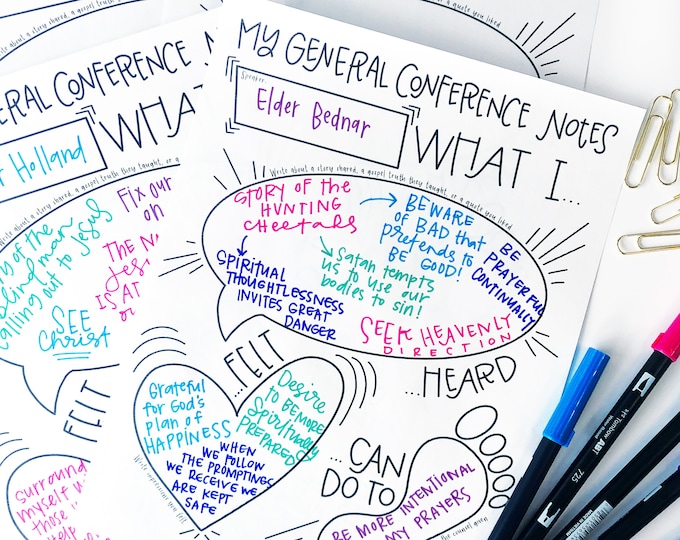 MY GENERAL CONFERENCE NOTES
Speaker:
Elder Bednar
WHAT I...
Write about a story shared, a gospel truth they taught, or a quote you liked
STORY OF THE
HUNTING
CHEETAHS
BEWARE
OF BAD that
pretends to
BE GOOD!
BE
PRAYERFUL
CONTINUALLY
SPIRITUAL
THOUGHTLESSNESS
INVITES GREAT
DANGER
Satan tempts
us to use our
bodies to sin!
SEEK HEAVENLY
DIRECTION
...HEARD
...FELT
Grateful
for God's
plan of
HAPPINESS
Desire
to BE MORE
Spiritually
PREPARED
WHEN
WE FOLLOW
THE PROMPTINGS
WE RECEIVE WE
ARE KEPT
SAFE
Write impressions you felt
...CAN
DO TO
BE MORE INTENTIONAL
MY PRAYERS
the counsel given
CONFERENCE
Holland
WHAT
Write about a story shared, a gospel truth they taught, or a
Fix our
on
of the
blind man
calling out to Jesus
THE
IS AT
SEE
Christ
FELT
Surround
myself
those
help
a gospel truth they taught, or a quote you liked
Write about a story shared, a gospel truth they taught, or a quote you liked
Tombow ABT
725